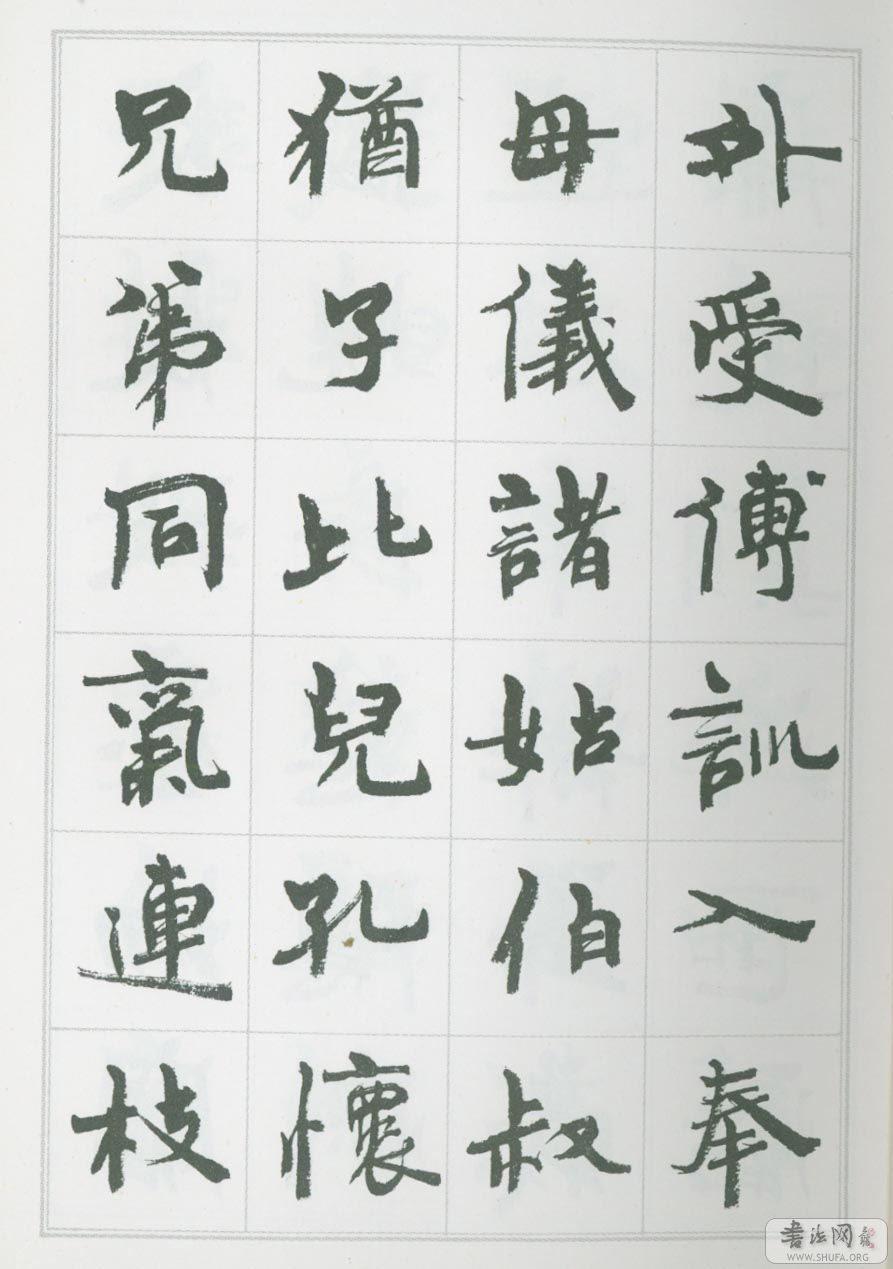 外受傅訓入奉
母儀諸姑伯叔
猶子比兒孔懷
兄弟同氣連枝
書法网
WWW.SHUFA.ORG